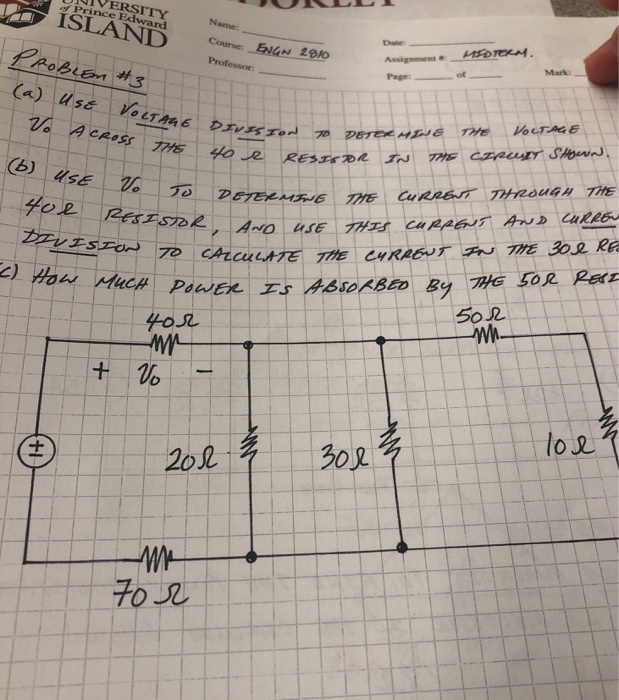 UNIVERSITY
of Prince Edward
ISLAND
Name:
Course: ENGN 2810
Professor:
Date:
Assignment #: MIDTERM.
Page: of
Mark:
PROBLEM #3
(a) USE VOLTAGE DIVISION TO DETERMINE THE VOLTAGE
V₀ ACROSS THE 40 Ω RESISTOR IN THE CIRCUIT SHOWN.
(b) USE V₀ TO DETERMINE THE CURRENT THROUGH THE
40Ω RESISTOR, AND USE THIS CURRENT AND CURREN
DIVISION TO CALCULATE THE CURRENT IN THE 30Ω RE
c) HOW MUCH POWER IS ABSORBED BY THE 50Ω RESI
40Ω
50Ω
+ V₀ -
±
20Ω
30Ω
10Ω
70Ω